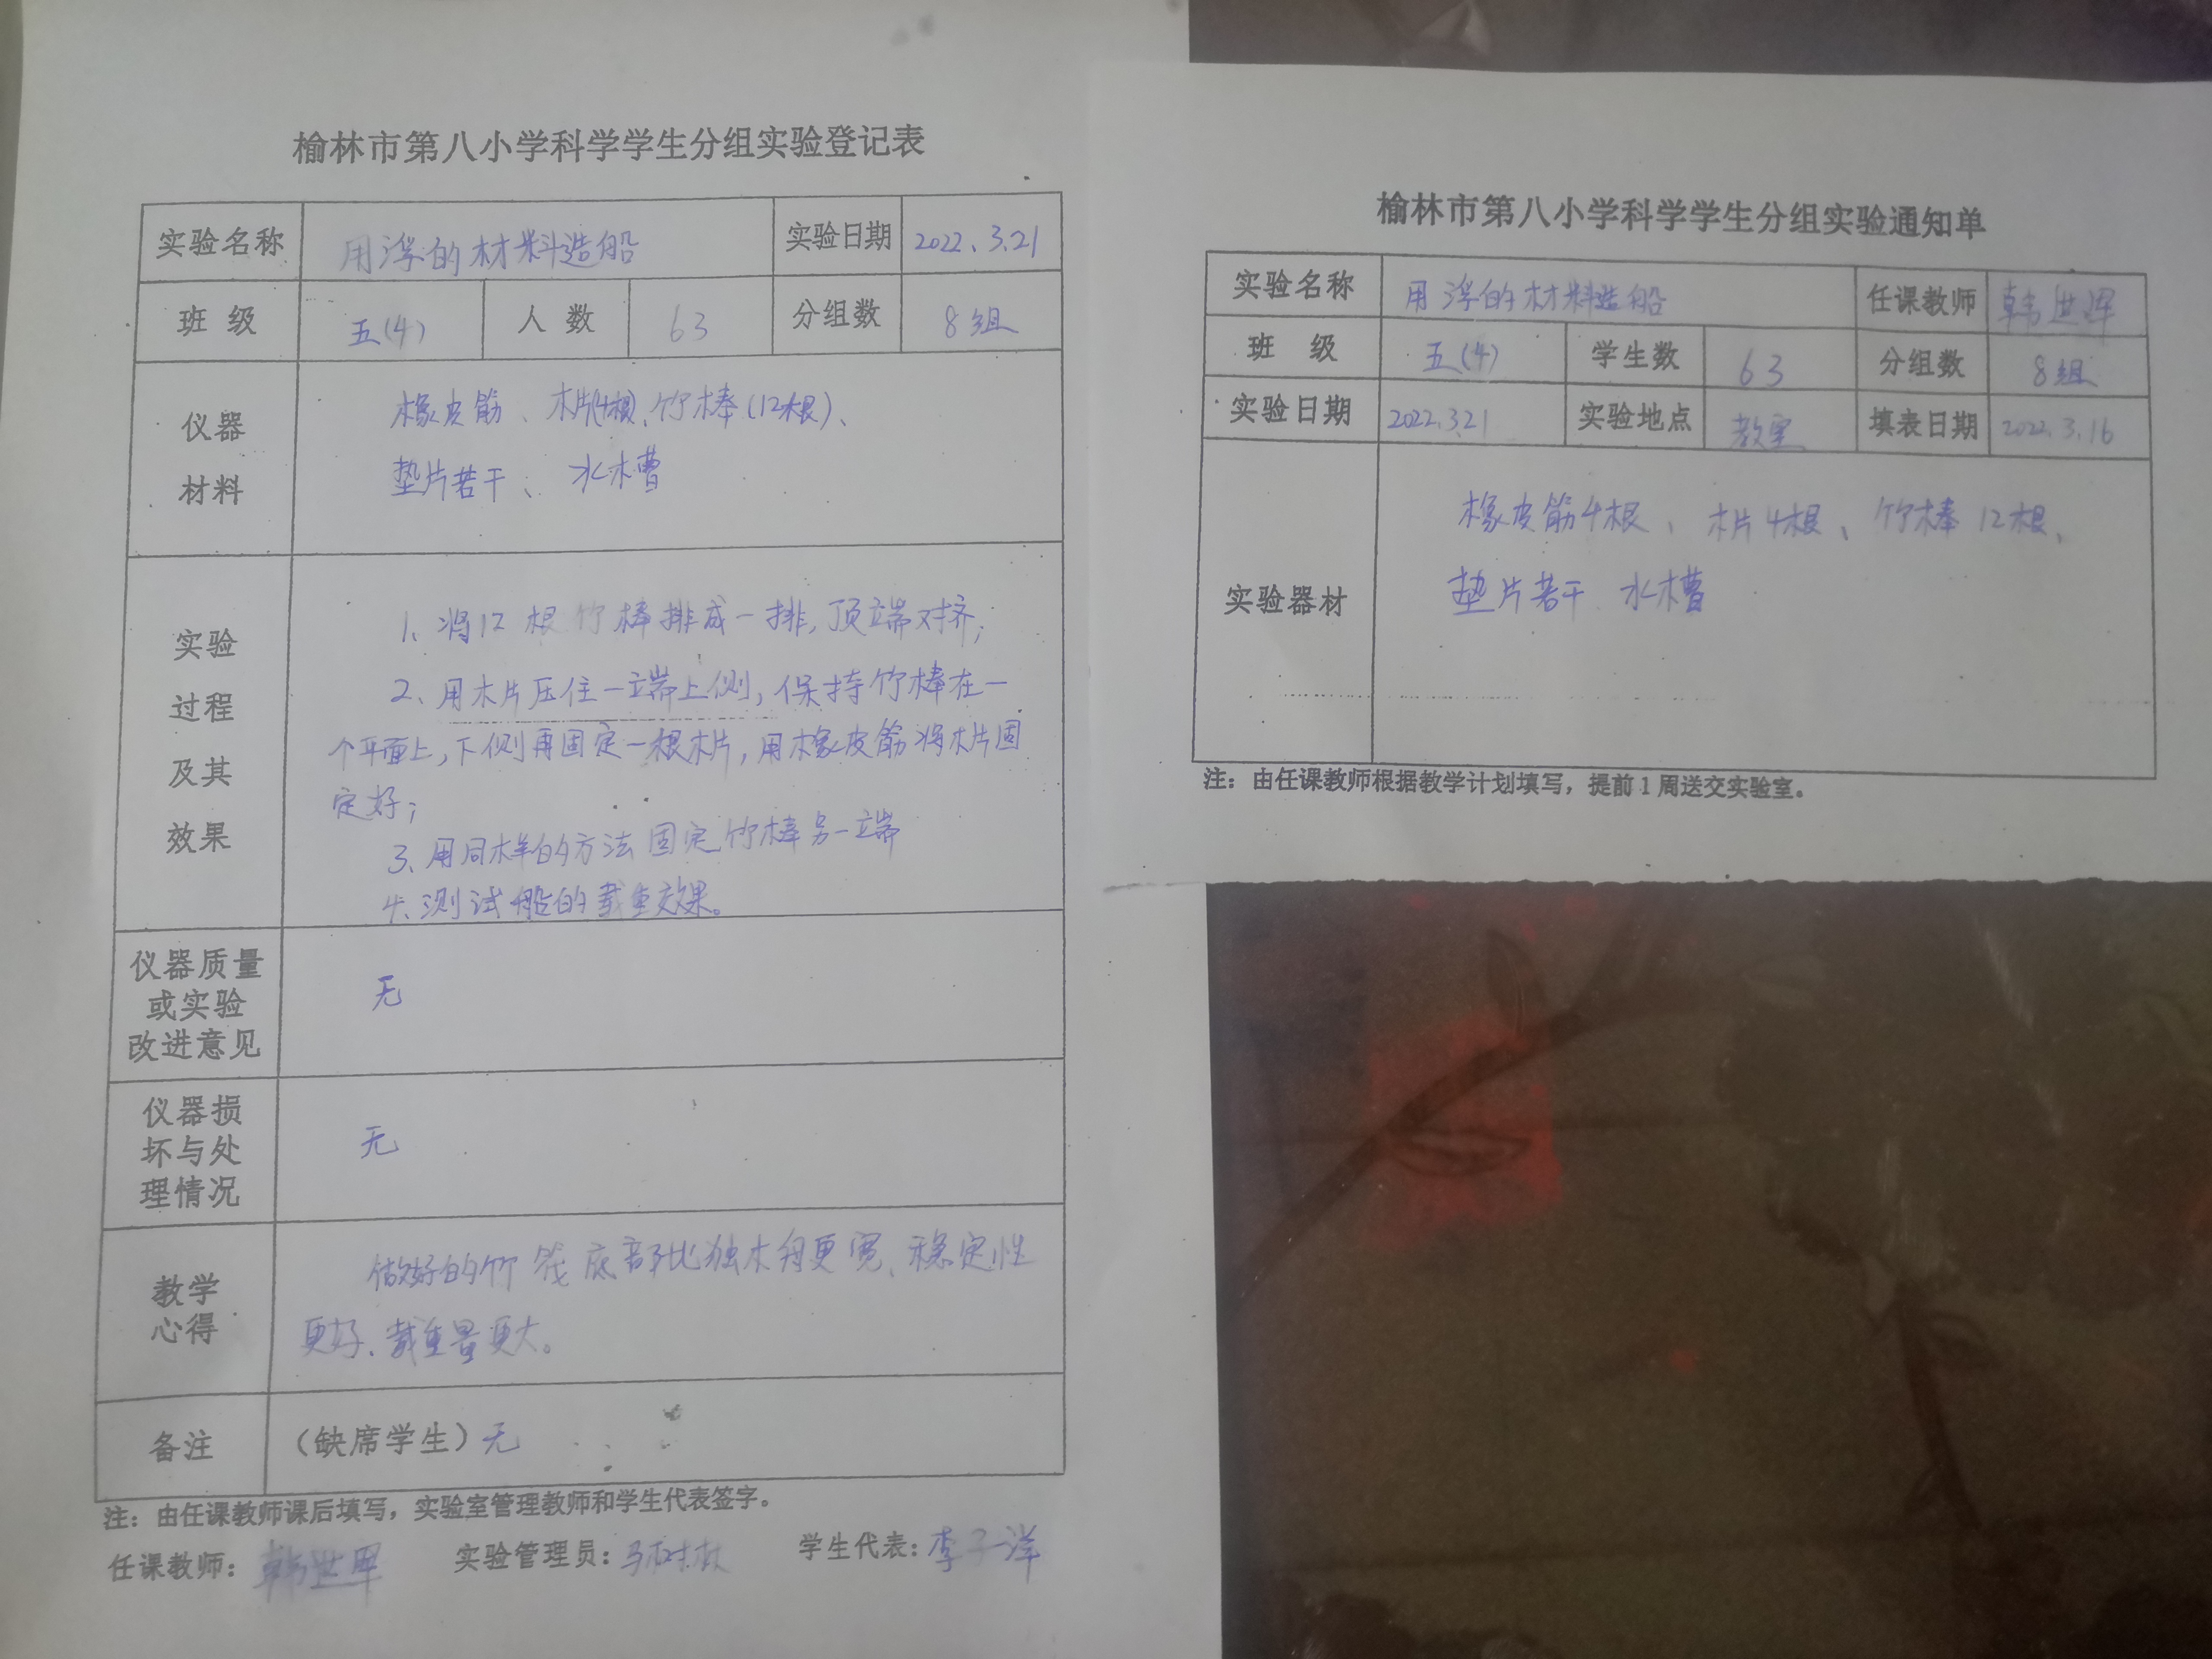 榆林市第八小学科学学生分组实验登记表
实验名称 用浮的材料造船 实验日期 2022.3.21
班 级 五(4) 人 数 63 分组数 8组
仪器
材料
橡皮筋、木片(4根)、竹棒(12根)、
垫片若干、水槽
实验
过程
及其
效果
1、将12根竹棒排成一排,顶端对挤;
2、用木片压住一端上侧,保持竹棒在一
个平面上,下侧再固定一根木片,用橡皮筋将木片固
定好;
3、用同样的方法固定竹棒另一端
4、测试船的载重效果。
仪器质量
或实验
改进意见
无
仪器损
坏与处
理情况
无
教学
心得
做好的竹筏底部比独木舟更宽、稳定性
更好、载重量更大。
备注 (缺席学生)无
注:由任课教师课后填写,实验室管理教师和学生代表签字。
任课教师: 实验管理员: 学生代表:李子洋
榆林市第八小学科学学生分组实验通知单
实验名称 用浮的材料造船 任课教师
班 级 五(4) 学生数 63 分组数 8组
实验日期 2022.3.21 实验地点 教室 填表日期 2022.3.16
实验器材
橡皮筋4根、木片4根、竹棒12根、
垫片若干、水槽
注:由任课教师根据教学计划填写,提前1周送交实验室。